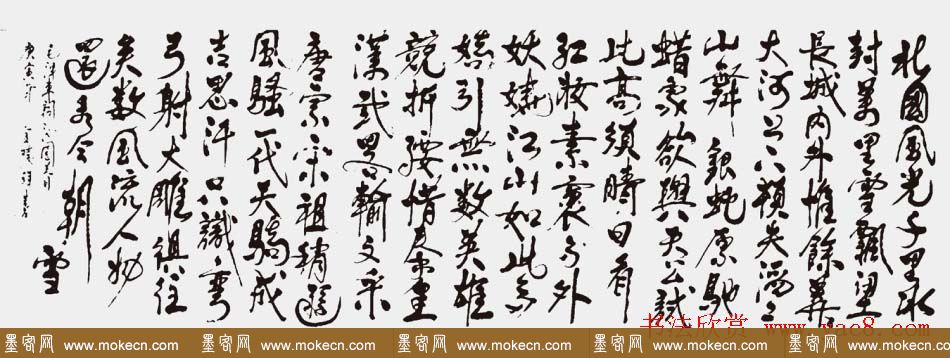 北國風光千里冰
封萬里雪飄望
長城内外惟餘莽
大河上下頓失滔〻
山舞銀蛇原馳
蜡象欲與天公試
比高須晴日看
紅妝素裹分外
妖嬈江山如此多
嬌引無數英雄
競折腰惜秦皇
漢武畧輸文采
唐宗宋祖稍遜
風騷一代天驕成
吉思汗只識彎
弓射大雕俱往
矣數風流人物
還看今朝 雪
毛澤東詞沁園春
庚寅年
书法欣赏 www.yac8.com
墨客网 www.mokecn.com 墨客网 www.mokecn.com 墨客网 www.mokecn.com 墨客网 www.mokecn.com 墨客网 www.mokecn.com